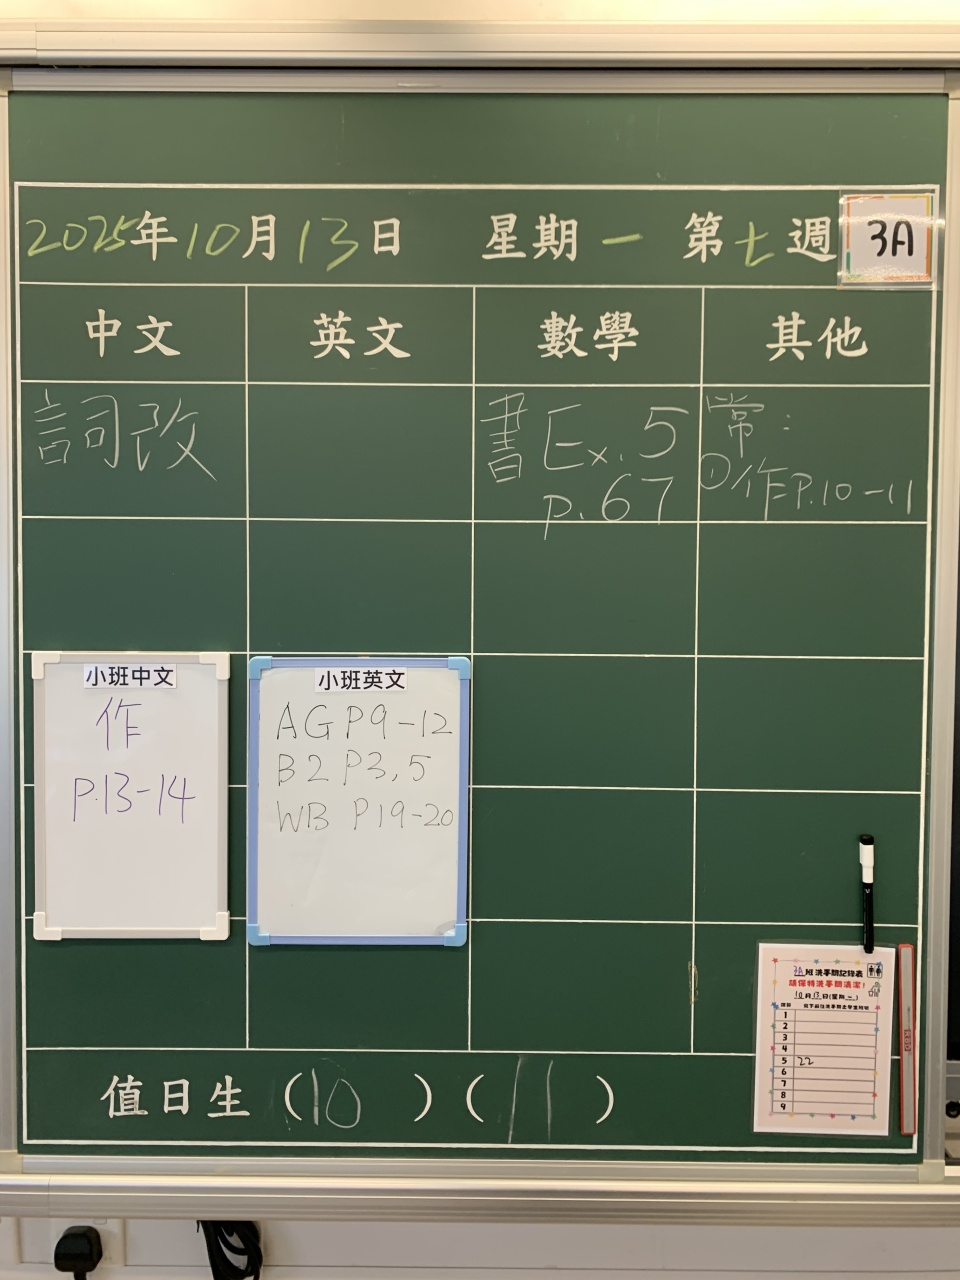 2025年10月13日 星期一 第七週 3A
中文 英文 數學 其他
詞改
書 Ex. 5
p. 67
常:
①作P.10-11
小班中文
作
P.13-14
小班英文
AG P9-12
B2 P3,5
WB P19-20
3A班洗手間記錄表
請保持洗手間清潔!
10月13日(星期一)
1
2
3
4
5 22
6
7
8
9
值日生(10)(11)